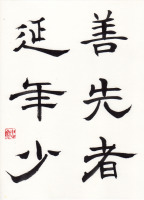 善先者
延年少